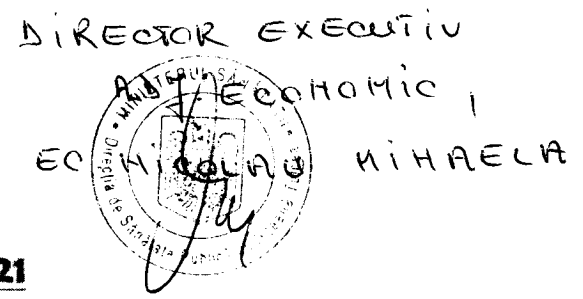 DIRECTOR EXECUTIV
ADJ. ECONOMIC,
EC NICOLAU MIHAELA
MINISTERUL SĂN
Direcția de Sănătate Publică
21